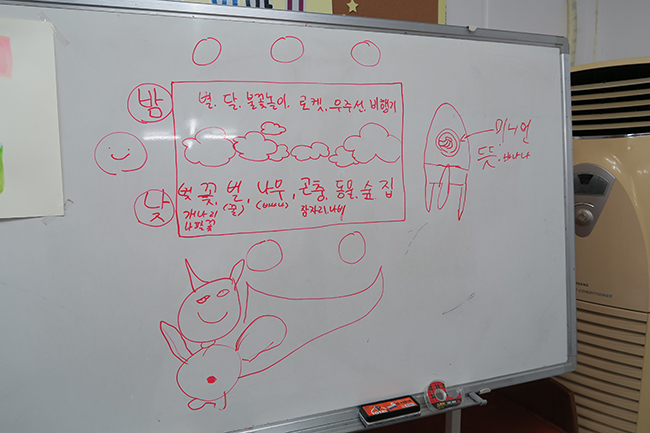 밤 별, 달, 불꽃놀이, 로켓, 우주선, 비행기
낮 벚꽃, 벌, 나무, 곤충, 동물, 숲 집
개나리 (꿀) 잠자리 나비
나팔꽃
미니언
뜻. 바나나